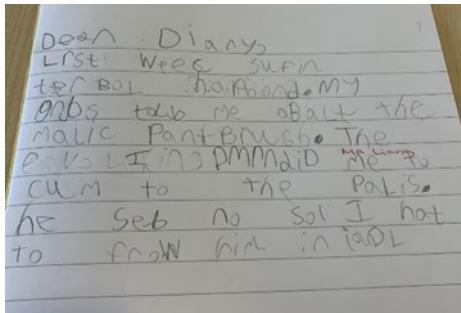 Dear Diary,
Last Week sufin
terBOL haPPond. My
gnbs towb me abalt the
Malic PantBrush. The
evol King DMMdiD Ma Liang Me to
cum to the Palis.
he seb no sol I hat
to frow him in iaOL